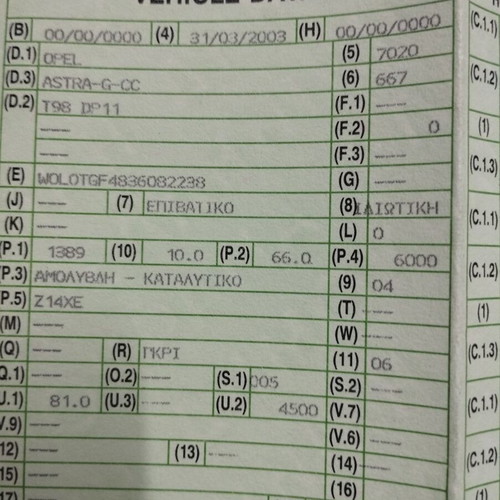 (B) 00/00/0000 (4) 31/03/2003 (H) 00/00/0000
(D.1) OPEL (5) 7020
(D.3) ASTRA-G-CC (6) 667
(D.2) T98 DP11 (F.1) ----
---- (F.2) 0
---- (F.3) ----
(E) WOLOTGF4836082238 (G) ----
(J) ---- (7) ΕΠΙΒΑΤΙΚΟ (8) ΙΔΙΩΤΙΚΗ
(K) ---- (L) 0
(P.1) 1389 (10) 10.0 (P.2) 66.0 (P.4) 6000
(P.3) ΑΜΟΛΥΒΔΗ - ΚΑΤΑΛΥΤΙΚΟ (9) 04
(P.5) Z14XE (T) ----
(M) ---- (W) ----
(Q) ---- (R) ΓΚΡΙ (11) 06
(O.1) ---- (O.2) ---- (S.1) 005 (S.2) ----
(U.1) 81.0 (U.3) ---- (U.2) 4500 (V.7) ----
(V.9) ---- (V.6) ----
(12) ---- (13) ---- (14) ----
(15) ---- (16)
(17)
(C.1.1)
(C.1.2)
(1)
(C.1.3)
(C.1.1)
(C.1.2)
(1)
(C.1.3)
(C.1.1)
(C.1.2)
(1)